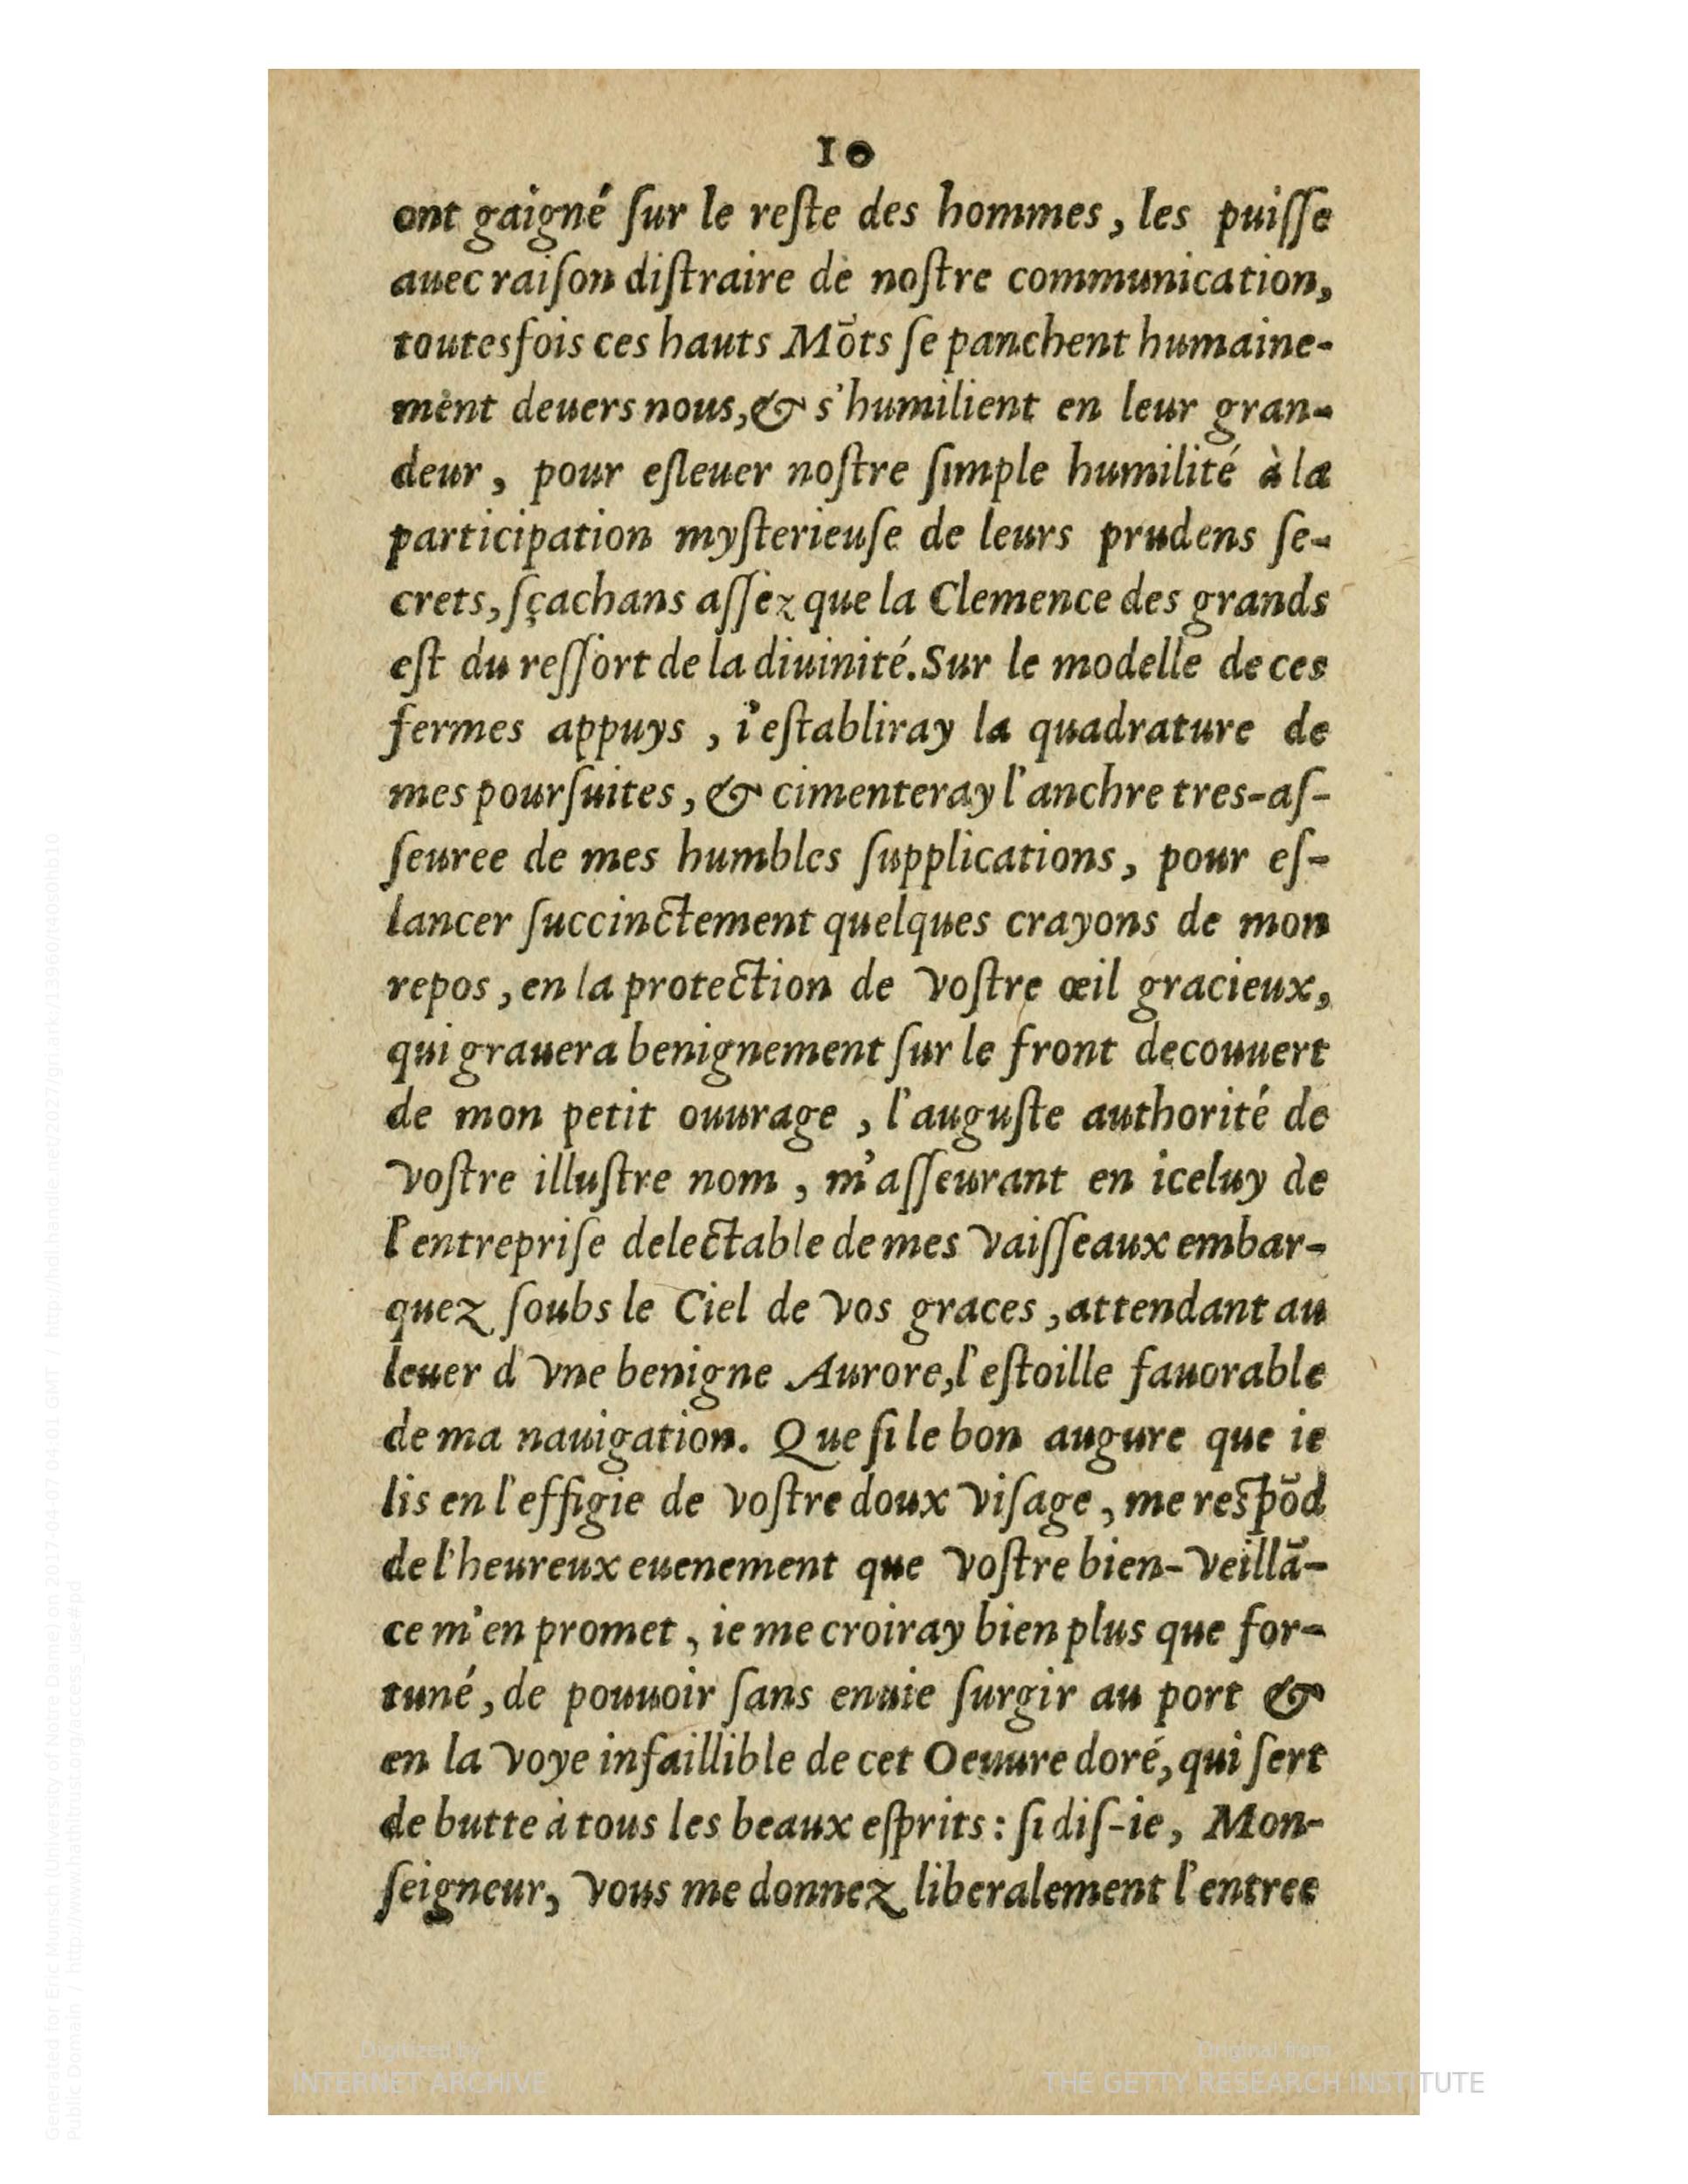 10
ont gaigné ſur le reſte des hommes, les puiſſe
auec raiſon diſtraire de noſtre communication,
toutesfois ces hauts Mõts ſe panchent humaine-
ment deuers nous, & s'humilient en leur gran-
deur, pour eſleuer noſtre ſimple humilité à la
participation myſterieuſe de leurs prudens ſe-
crets, ſçachans aſſez que la Clemence des grands
eſt du reſſort de la diuinité. Sur le modelle de ces
fermes appuys, i'eſtabliray la quadrature de
mes pourſuites, & cimenteray l'anchre tres-aſ-
ſeuree de mes humbles ſupplications, pour eſ-
lancer ſuccinctement quelques crayons de mon
repos, en la protection de voſtre œil gracieux,
qui grauera benignement ſur le front decouuert
de mon petit ouurage, l'auguſte authorité de
voſtre illuſtre nom, m'aſſeurant en iceluy de
l'entrepriſe delectable de mes vaiſſeaux embar-
quez ſoubs le Ciel de vos graces, attendant au
leuer d'vne benigne Aurore, l'eſtoille fauorable
de ma nauigation. Que ſi le bon augure que ie
lis en l'effigie de voſtre doux viſage, me reſpõd
de l'heureux euenement que voſtre bien-veillã-
ce m'en promet, ie me croiray bien plus que for-
tuné, de pouuoir ſans enuie ſurgir au port &
en la voye infaillible de cet Oeuure doré, qui ſert
de butte à tous les beaux eſprits : ſi diſ-ie, Mon-
ſeigneur, vous me donnez liberalement l'entree
Digitized by
INTERNET ARCHIVE
Original from
THE GETTY RESEARCH INSTITUTE
Generated for Eric Munsch (University of Notre Dame) on 2017-04-07 04:01 GMT / http://hdl.handle.net/2027/gri.ark:/13960/t40s0hb10
Public Domain / http://www.hathitrust.org/access_use#pd